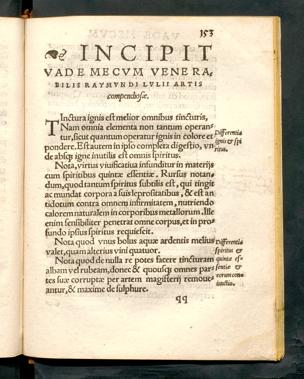 153
INCIPIT
VADE MECVM VENERA,
BILIS RAYMVNDI LVLII ARTIS
compendiosæ.
TInctura ignis est melior omnibus tincturis,
Nam omnia elementa non tantum operan-
tur, sicut quantum operatur ignis in colore et
pondere. Est autem in ipso completa digestio, vn
de absq; igne inutilis est omnis spiritus.
Differentia
ignis & spi
ritus.
Nota, virtus viuificatiua infunditur in materijs
cum spiritibus quintæ essentiæ, Rursus notan-
dum, quod tantum spiritus subtilis est, qui tingit
ac mundat corpora à suis leprositatibus, & est an
tidotum contra omnem infirmitatem, nutriendo
calorem naturalem in corporibus metallorum. Ille
enim sensibiliter penetrat omne corpus, et in pro
fundo ipsius spiritus requiescit.
Nota quod vnus bolus aquæ ardentis melius
valet, quam alterius vini quatuor.
Nota quod de nulla re potes facere tincturam
albam vel rubeam, donec & quousq; omnes par
tes suæ corruptæ per artem magisterij remoue-
antur, & maxime de sulphure.
Differentia
spiritus &
quintæ es
sentiæ &
eorum con
iunctio.
qq